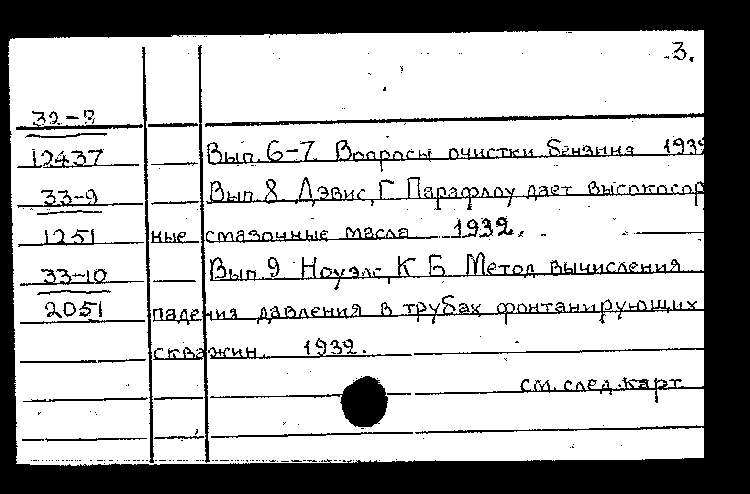 3.
32-8
12437 Вып. 6-7. Вопросы очистки бензина 1932
33-9 Вып. 8. Дэвис, Г. Парафлоу дает высокосор
1251 ные смазочные масла 1932.
33-10 Вып. 9. Ноуэлс, К. Б. Метод вычисления
2051 падения давления в трубах фонтанирующих
скважин. 1932.
см. след. карт